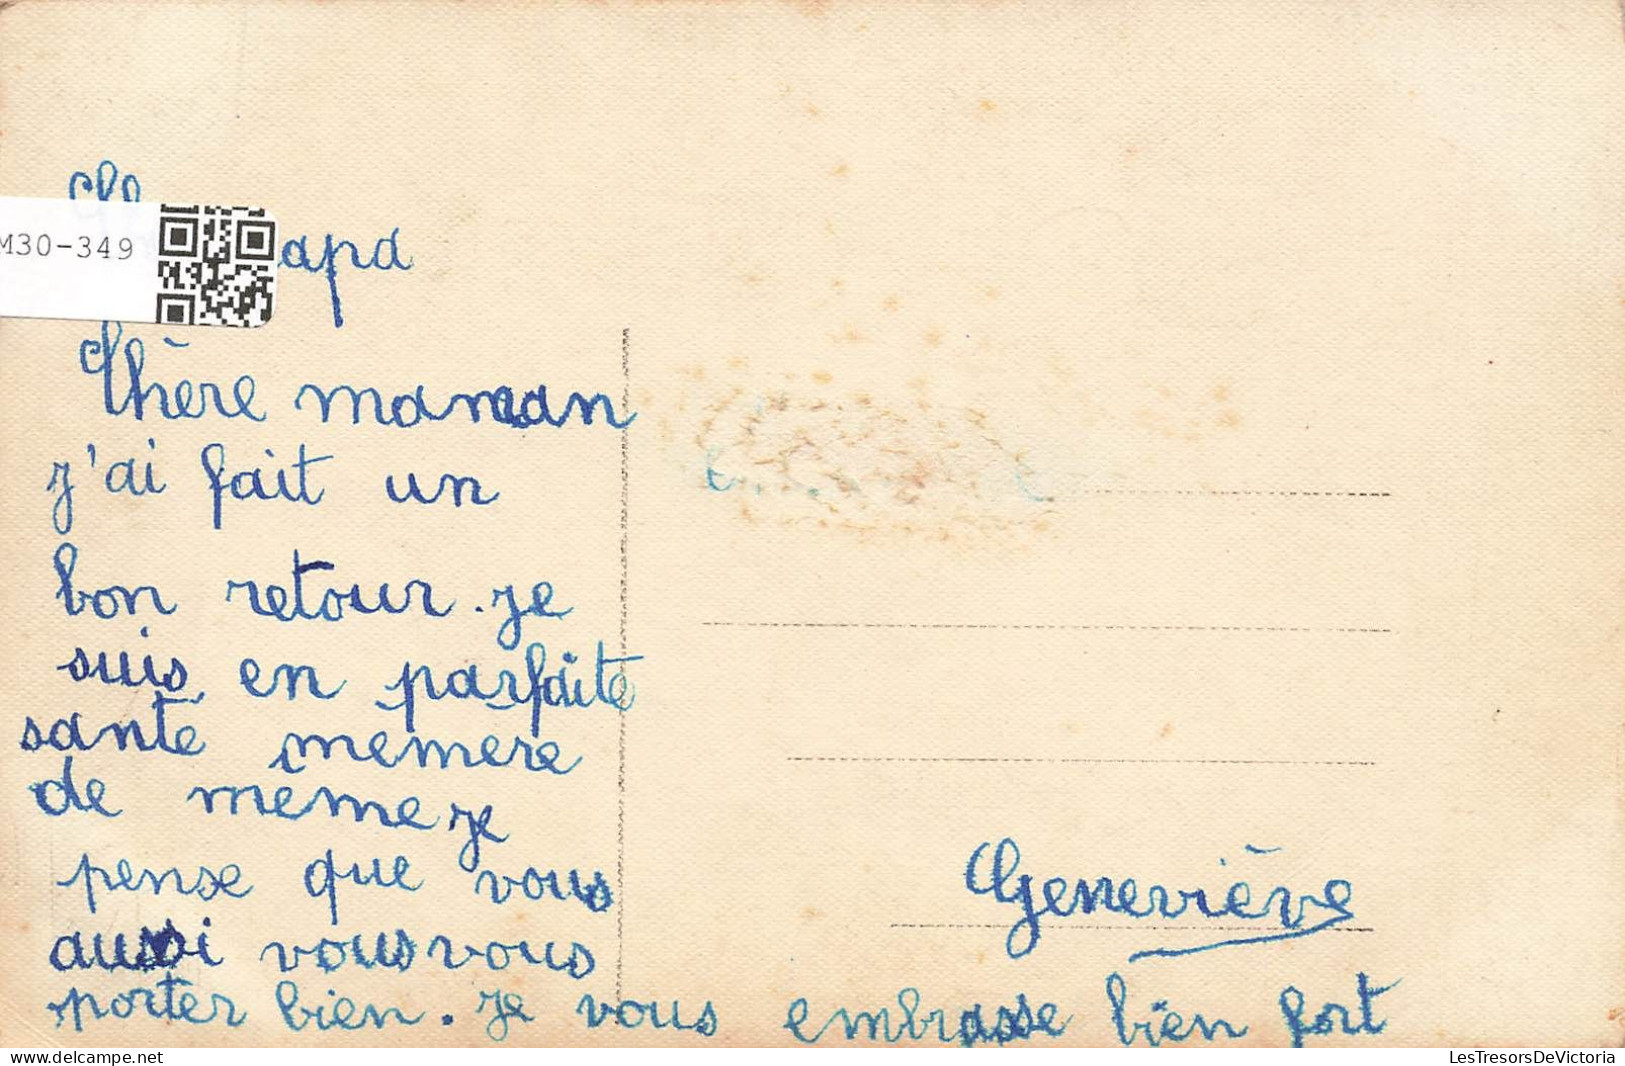 M30-349
apa
Chère maman
j'ai fait un
bon retour. je
suis en parfaite
santé mémère
de même je
pense que vous
aussi vous vous
porter bien. Je vous embrasse bien fort
Geneviève
LesTresorsDeVictoria